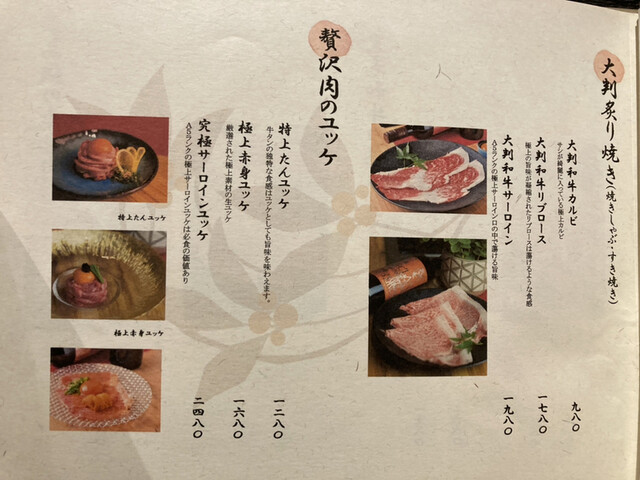 大判炙り焼き(焼きしゃぶ・すき焼き)
大判和牛カルビ
サシが綺麗に入っている極上カルビ
九八〇
大判和牛リブロース
極上の旨味が凝縮されたリブロースは蕩けるような食感
一七八〇
大判和牛サーロイン
A5ランクの極上サーロインロの中で蕩ける旨味
一九八〇
贅沢肉のユッケ
特上たんユッケ
牛タンの独特な食感はユッケとしても旨味を味わえます。
一二八〇
極上赤身ユッケ
厳選された極上素材の生ユッケ
一六八〇
究極サーロインユッケ
A5ランクの極上サーロインユッケは必食の価値あり
二四八〇
特上たんユッケ
極上赤身ユッケ